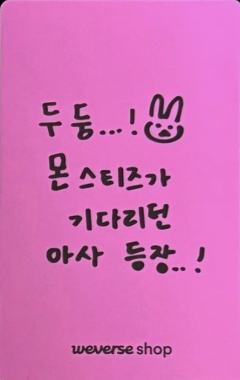 두둥...!
몬스티즈가
기다리던
아사 등장..!
weverse shop